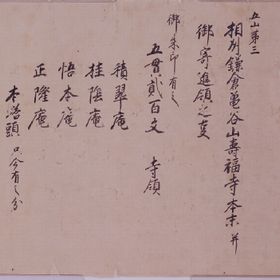 五山第三
相州鎌倉亀谷山壽福寺本末并
御寄進領之事
御朱印有之
五貫貳百文 寺領
積翠庵
桂陰庵
悟本庵
正隆庵
本塔頭 只今有之分